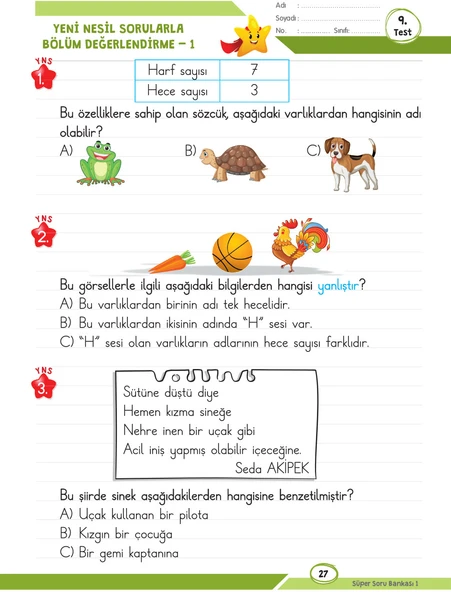 YENİ NESİL SORULARLA
BÖLÜM DEĞERLENDİRME – 1
Adı :
Soyadı :
No. : Sınıfı:
9.
Test
YNS
1.
Harf sayısı 7
Hece sayısı 3
Bu özelliklere sahip olan sözcük, aşağıdaki varlıklardan hangisinin adı
olabilir?
A) B) C)
YNS
2.
Bu görsellerle ilgili aşağıdaki bilgilerden hangisi yanlıştır?
A) Bu varlıklardan birinin adı tek hecelidir.
B) Bu varlıklardan ikisinin adında “H” sesi var.
C) “H” sesi olan varlıkların adlarının hece sayısı farklıdır.
YNS
3.
Sütüne düştü diye
Hemen kızma sineğe
Nehre inen bir uçak gibi
Acil iniş yapmış olabilir içeceğine.
Seda AKİPEK
Bu şiirde sinek aşağıdakilerden hangisine benzetilmiştir?
A) Uçak kullanan bir pilota
B) Kızgın bir çocuğa
C) Bir gemi kaptanına
27
Süper Soru Bankası 1